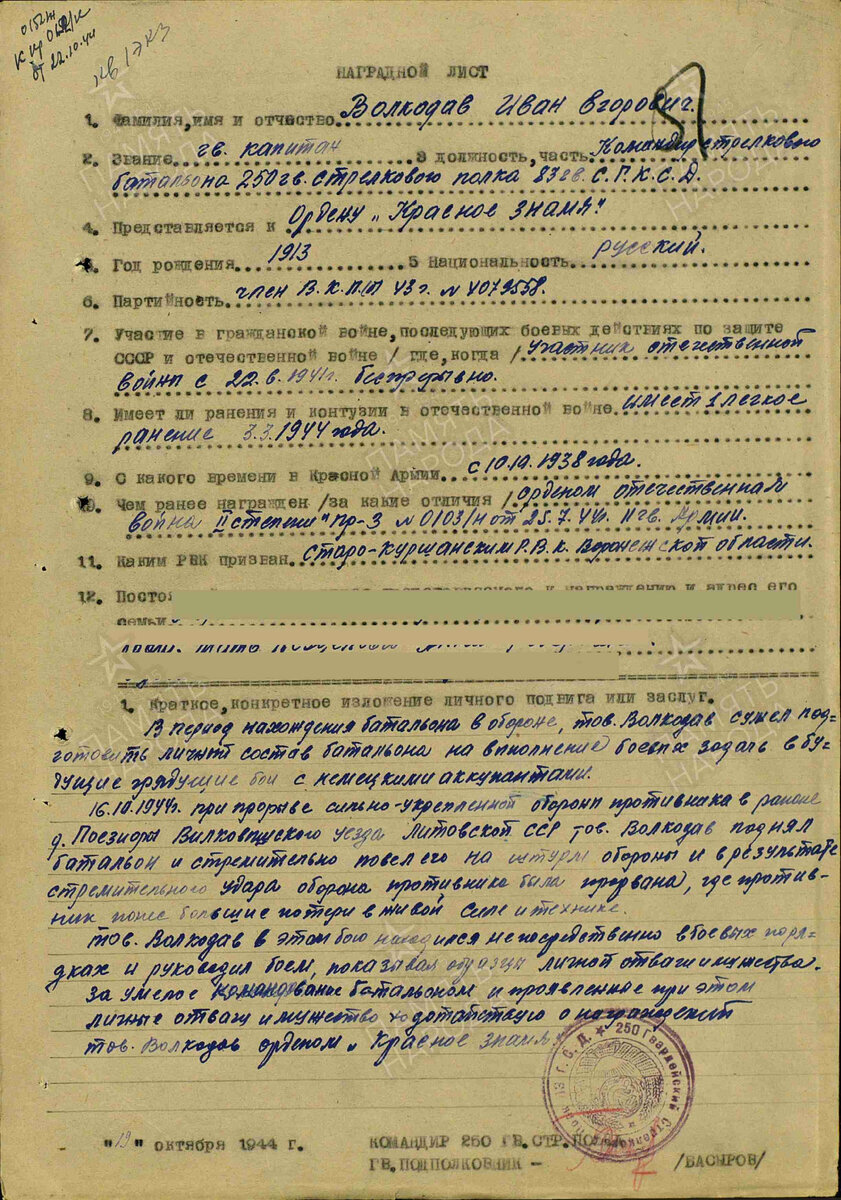 0152н
К пр 0152/н
от 22.10.44
КВ 1 ЭКЗ
НАГРАДНОЙ ЛИСТ
1. Фамилия,имя и отчество Волкодав Иван Егорович.
2. Звание гв. капитан 3 должность,часть Командир стрелкового
батальона 250 гв. стрелкового полка 83 гв. С.Г.К.С.Д.
4. Представляется к Ордену „Красное знамя".
Год рождения 1913 5 Национальность русский.
6. Партийность член В.К.П.П 43 г. № 4079558.
7. Участие в гражданской войне,последующих боевых действиях по защите
СССР и отечественной войне /где,когда/ Участник отечественной
войны с 22.6.1941г. беспрерывно.
8. Имеет ли ранения и контузии в отечественной войне имеет 1 легкое
ранение 3.3.1944 года.
9. С какого времени в Красной Армии с 10.10.1938 года.
10. Чем ранее награжден /за какие отличия/ Орденом отечественная
война II степени" пр-з № 0103/н от 25.7.44г. 11 гв. Армии.
11. Каким РВК призван Старо-Куршанским Р.В.к. Воронежской области.
12. Посто награждению и адрес его
семьи
1. Краткое,конкретное изложение личного подвига или заслуг.
В период нахождения батальона в обороне, тов. Волкодав сумел под-
готовить личный состав батальона на выполнение боевых задачь в бу-
дущие грядущие бои с немецкими аккупантами.
16.10.1944г. при прорыве сильно-укрепленной обороны противника в районе
д. Поезиоры Вилковышуского уезда Литовской ССР тов. Волкодав поднял
батальон и стремительно повел его на штурм обороны и в результате
стремительного удара оборона противника была прорвана, где против-
ник понес большие потери в живой силе и технике.
тов. Волкодав в этом бою находился непосредственно в боевых поря-
дках и руководил боем, показывая образцы личной отваги и мужества.
За умелое командование батальоном и проявленное при этом
личные отвагу и мужество ходатайствую о награждении
тов. Волкодав орденом „Красное знамя".
250 Гвардейский Стрелковый Полк 83 Г.С.Д.
"19" октября 1944 г. КОМАНДИР 250 ГВ.СТР.ПОЛКА
ГВ.ПОДПОЛКОВНИК - /БАСЫРОВ/
ПАМЯТЬ
НАРОДА